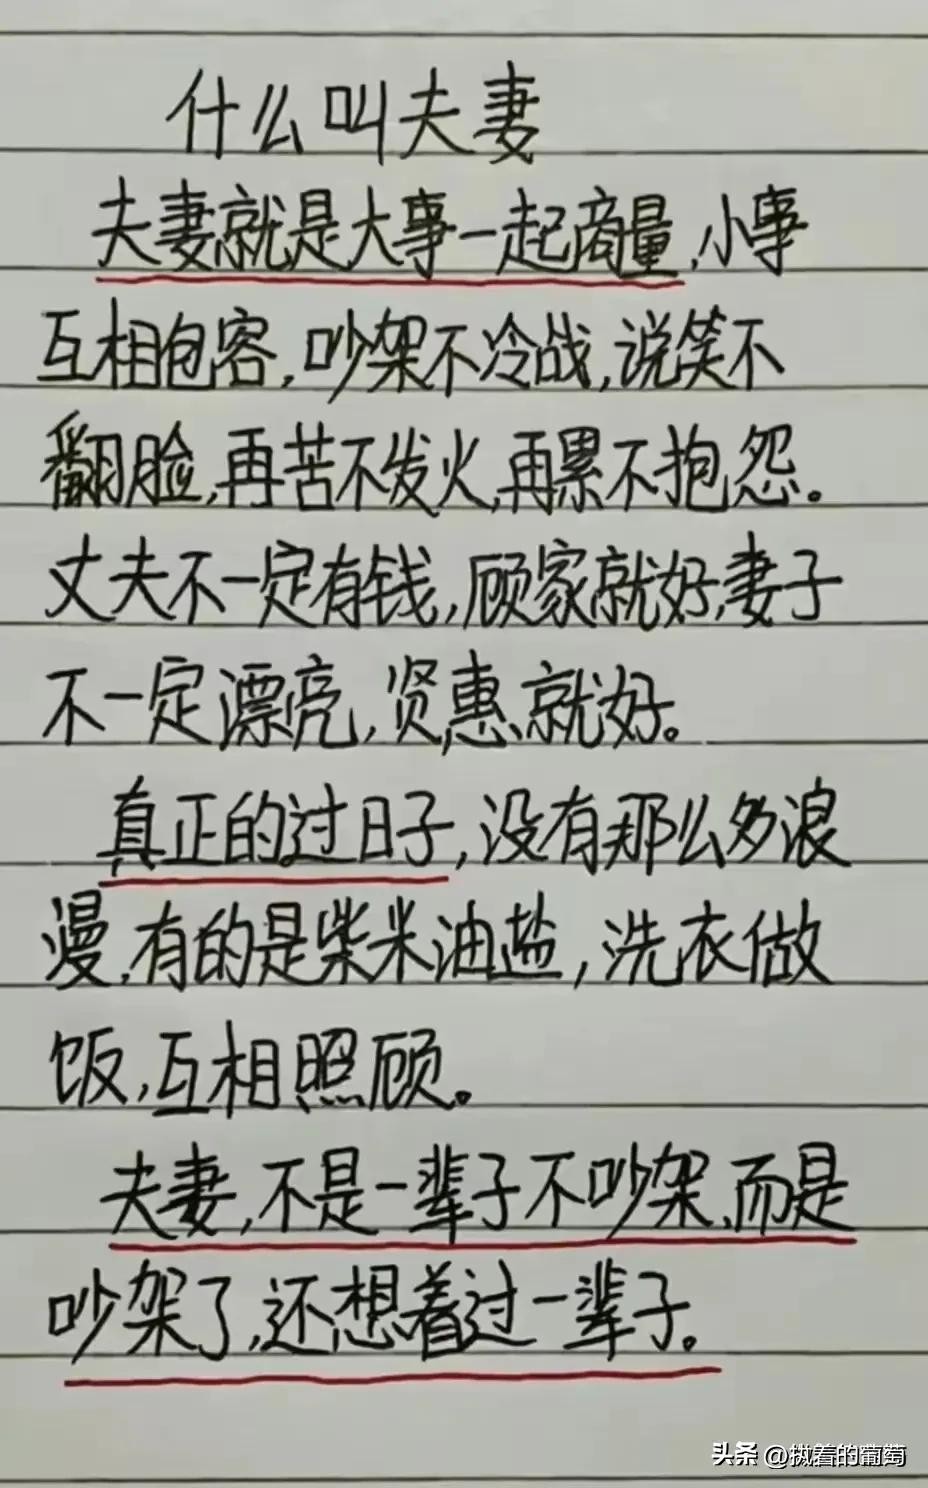 什么叫夫妻
夫妻就是大事一起商量,小事
互相包容,吵架不冷战,说笑不
翻脸,再苦不发火,再累不抱怨。
丈夫不一定有钱,顾家就好,妻子
不一定漂亮,贤惠就好。
真正的过日子,没有那么多浪
漫,有的是柴米油盐,洗衣做
饭,互相照顾。
夫妻,不是一辈子不吵架,而是
吵架了,还想着过一辈子。
头条 @执着的葡萄